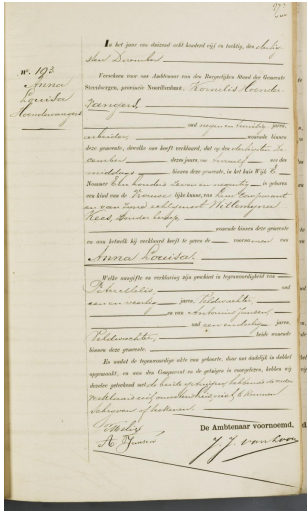 N°. 193.
Anna
Louisa
In het jaar een duizend acht honderd vijf en tachtig, den
sten December
Verscheen voor ons Ambtenaar van den Burgerlijken Stand der Gemeente
Steenbergen, provincie Noordbrabant, Kornelis
oud negen en twintig jaren,
arbeider, wonende binnen
deze gemeente, dewelke ons heeft verklaard, dat op den De-
cember dezes jaars, om ure des
middags binnen deze gemeente, in het huis Wijk E
Nommer Een honderd zeven en negentig is geboren
een kind van de Vrouwelijke kunne, van hem Comparant
en van zijne echtgenoot Willemyna
Kees, zonder beroep
wonende binnen deze gemeente
en aan hetwelk hij verklaard heeft te geven de voornamen van
Anna Louisa
Welke aangifte en verklaring zijn geschied in tegenwoordigheid van
oud
een en veertig jaren, Veldwachter,
en van Antonius Jansen
oud jaren,
Veldwachter, beide wonende
binnen deze gemeente.
En nadat de tegenwoordige akte van geboorte, door ons dadelijk in dubbel
opgemaakt, en aan den Comparant en de getuigen is voorgelezen, hebben wij
dezelve geteekend met de beide getuigen, hebbende de vader
verklaard niet te kunnen
schrijven of teekenen.
De Ambtenaar voornoemd,
A. Jansen
J. J. van Loon